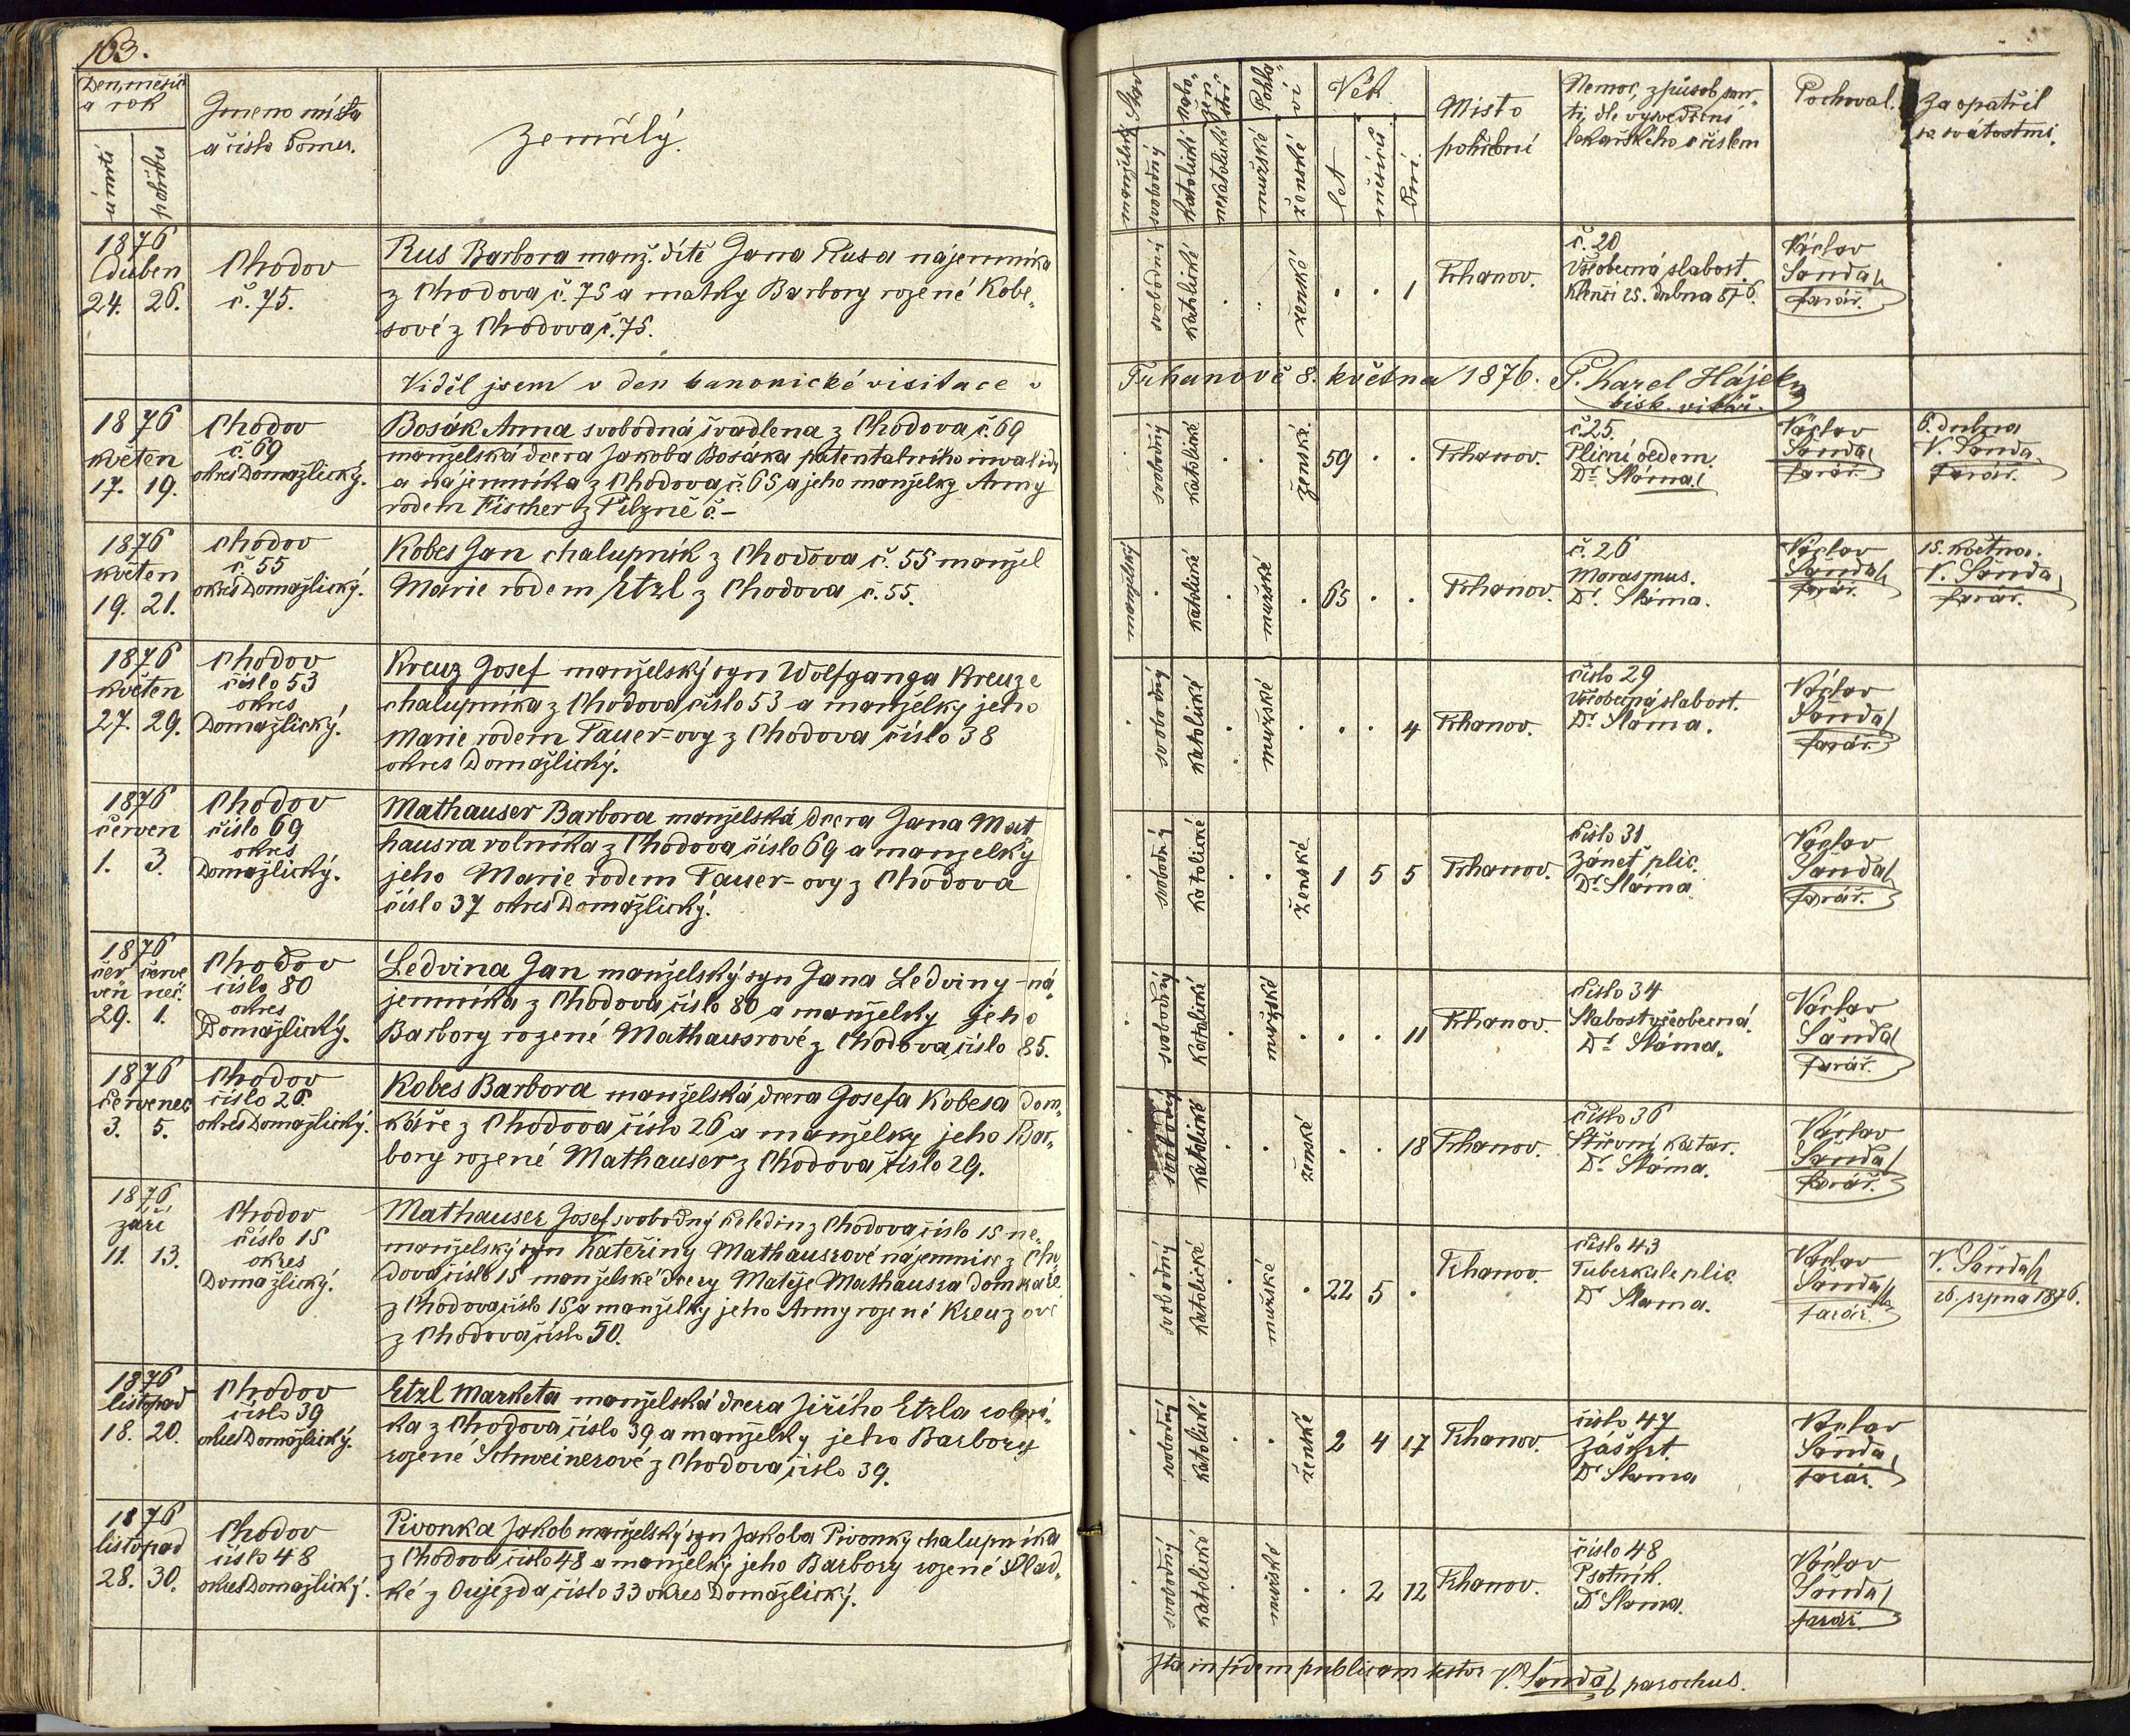 163.
Den, měsíc
a rok
úmrtí
pohřbu
Jmeno místa
a číslo domu.
Zemřelý.
1876
duben
24. 26.
Chodov
č. 75.
Rus Barbora manž. dítě Jana Rusa nájemníka
z Chodova č. 75 a matky Barbory rozené Kobe-
sové z Chodova č. 75.
Viděl jsem v den kanonické visitace v
1876
květen
17. 19.
Chodov
č. 69
okres Domažlický.
Bosák Anna svobodná švadlena z Chodova č. 69
manželská dcera Jakoba Bosáka patentalního invalidy
a nájemníka z Chodova č. 65 a jeho manželky Anny
rodem Fischer z Pilzně č. –
1876
květen
19. 21.
Chodov
č. 55
okres Domažlický.
Kobes Jan chalupník z Chodova č. 55 manžel
Marie rodem Etzl z Chodova č. 55.
1876
květen
27. 29.
Chodov
číslo 53
okres
Domažlický.
Kreuz Josef manželský syn Wolfganga Kreuze
chalupníka z Chodova číslo 53 a manželky jeho
Marie rodem Tauer-ovy z Chodova číslo 38
okres Domažlický.
1876
červen
1. 3.
Chodov
číslo 69
okres
Domažlický.
Mathauser Barbora manželská dcera Jana Mat
hausra rolníka z Chodova číslo 69 a manželky
jeho Marie rodem Tauer-ovy z Chodova
číslo 37 okres Domažlický.
1876
čer červe
ven nec.
29. 1.
Chodov
číslo 80
okres
Domažlický.
Ledvina Jan manželský syn Jana Ledviny – ná-
jemníka z Chodova číslo 80 a manželky jeho
Barbory rozené Mathausrové z Chodova číslo 85.
1876
červenec
3. 5.
Chodov
číslo 26.
okres Domažlický.
Kobes Barbora manželská dcera Josefa Kobesa dom-
káře z Chodova číslo 26 a manželky jeho Bar-
bory rozené Mathauser z Chodova číslo 29.
1876
září
11. 13.
Chodov
číslo 15
okres
Domažlický.
Mathauser Josef svobodný čeledín z Chodova číslo 15 ne-
manželský syn Kateřiny Mathausrové nájemnice z Cho-
dova číslo 15 manželské dcery Matěje Mathausra domkáře
z Chodova číslo 15 a manželky jeho Anny rozené Kreuzové
z Chodova číslo 50.
1876
listopad
18. 20.
Chodov
číslo 39
okres Domažlický.
Etzl Marketa manželská dcera Jiřího Etzla rolní-
ka z Chodova číslo 39 a manželky jeho Barbory
rozené Schweinerové z Chodova číslo 39.
1876
listopad
28. 30.
Chodov
číslo 48
okres Domažlický.
Pivonka Jakob manželský syn Jakoba Pivonky chalupníka
z Chodova číslo 48 a manželky jeho Barbory rozené Slad-
ké z Oujezda číslo 33 okres Domažlický.
Stav
manželský
svobodný
Nábo-
žen-
ství
katolické
nekatolické
Pohla-
ví
mužské
ženské
Věk
let
měsíců
dní.
Místo
pohřbení
Nemoc, způsob smr-
ti, dle vysvědčení
lekařského s číslem
Pochoval.
Zaopatřil
sv. svátostmi.
svobodný katolické ženské . . 1
Trhanov.
č. 20
Všeobecná slabost
Klenčí 25. dubna 876.
Václav
Šanda
farář.
Trhanově 8. května 1876. P. Karel Hájek
bisk. vikář.
svobodný katolické ženské 59 . .
Trhanov.
č. 25.
Plicní oedem.
Dr. Sláma.
Václav
Šanda
farář.
6. dubna
V. Šanda
farář.
manželský katolické mužské 65 . .
Trhanov.
č. 26
Morasmus.
Dr. Sláma.
Václav
Šanda
farář.
15. května.
V. Šanda
farář.
svobodný katolické mužské . . 4
Trhanov.
číslo 29
Všeobecná slabost.
Dr. Sláma.
Václav
Šanda
farář.
svobodný katolické ženské 1 5 5
Trhanov.
číslo 31
Zánět plic.
Dr. Sláma
Václav
Šanda
farář.
svobodný katolické mužské . . 11
Trhanov.
číslo 34
Slabost všeobecná.
Dr. Sláma.
Václav
Šanda
farář.
svobodný katolické ženské . . 18
Trhanov.
číslo 36
Střevní katar.
Dr. Sláma.
Václav
Šanda
farář.
svobodný katolické mužské 22 5 .
Trhanov.
číslo 43
Tuberkule plic
Dr Slama.
Václav
Šanda
farář.
V. Šanda
26. srpna 1876.
svobodný katolické ženské 2 4 17
Trhanov.
číslo 47
Záškrt.
Dr Slama
Václav
Šanda
farář.
svobodný katolické mužské . 2 12
Trhanov.
číslo 48
Psotník.
Dr Slama.
Václav
Šanda
farář.
Ita in fidem publicam testor V. Šanda parochus.